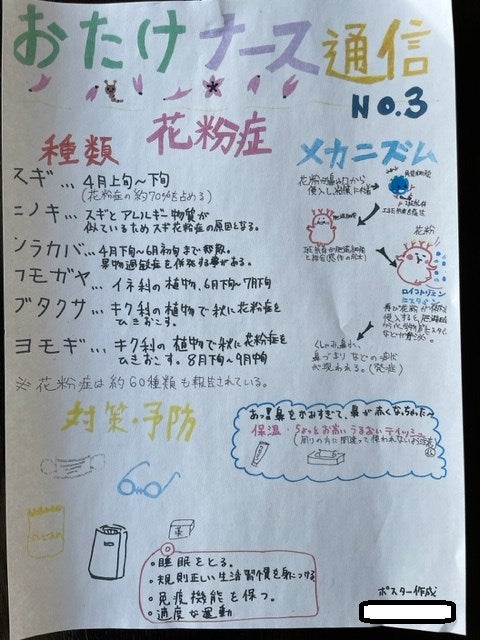 おたけナース通信
No.3
花粉症
種類
スギ… 4月上旬〜下旬
(花粉症の約70%を占める)
ヒノキ… スギとアレルギー物質が
似ているためスギ花粉症の原因となる。
シラカバ… 4月下旬〜6月初旬まで
果物過敏症を併発する事がある。
カモガヤ… イネ科の植物、6月下旬〜7月下旬
ブタクサ… キク科の植物で秋に花粉症を
ひきおこす。
ヨモギ… キク科の植物で秋に花粉症を
ひきおこす。8月下旬〜9月中旬
※花粉症は約60種類も報告されている。
メカニズム
花粉が鼻や口から
侵入し粘膜に付着
花粉
ロイコトリエン
ヒスタミン
くしゃみ、鼻水、
鼻づまりなどの症状
が現われる。(発症)
対策・予防
のどあめ
あっ!鼻をかみすぎて、鼻が赤くなっちゃた〜
保温・ちょっとお高いうるおいティッシュ
(周りの方に間違って使われないよう注意)
・睡眠をとる。
・規則正しい生活習慣を身につける
・免疫機能を保つ。
・適度な運動
ポスター作成